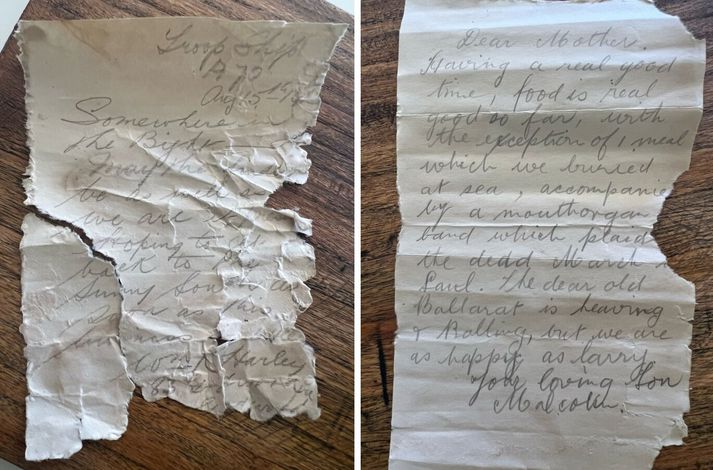 Troop Ship
A 70
Aug 15th
Somewhere in
the Bight
May the
be as well as
we are
Hoping to
back to
Sunny Sou
soon as this
Harley
Dear Mother.
Having a real good
time, food is real
good so far, with
the exception of 1 meal
which we buried
at sea, accompanie
by a mouthorgan
band which plaid
the dead March
Saul. The dear old
Ballarat is heaving
& Rolling, but we are
as happy as larry
Your loving Son
Malcolm.